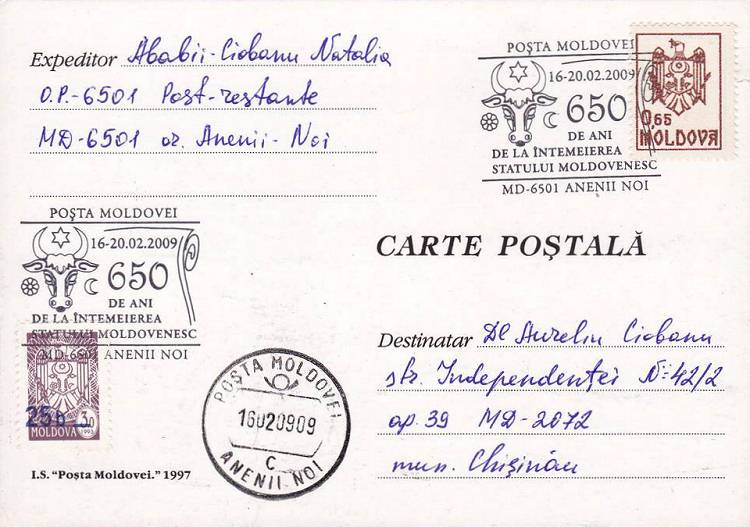 Expeditor Ababii-Ciobanu Natalia
O.P.-6501 Post-restante
MD-6501 or. Anenii-Noi
POȘTA MOLDOVEI
16-20.02.2009
650
DE ANI
DE LA ÎNTEMEIEREA
STATULUI MOLDOVENESC
MD-6501 ANENII NOI
0,65
MOLDOVA
POȘTA MOLDOVEI
16-20.02.2009
650
DE ANI
DE LA ÎNTEMEIEREA
STATULUI MOLDOVENESC
MD-6501 ANENII NOI
25b
MOLDOVA
CARTE POȘTALĂ
Destinatar Dl Aureliu Ciobanu
str. Independenței N:42/2
ap. 39 MD-2072
mun. Chișinău
POȘTA MOLDOVEI
16020909
C
ANENII NOI
I.S. "Poșta Moldovei." 1997